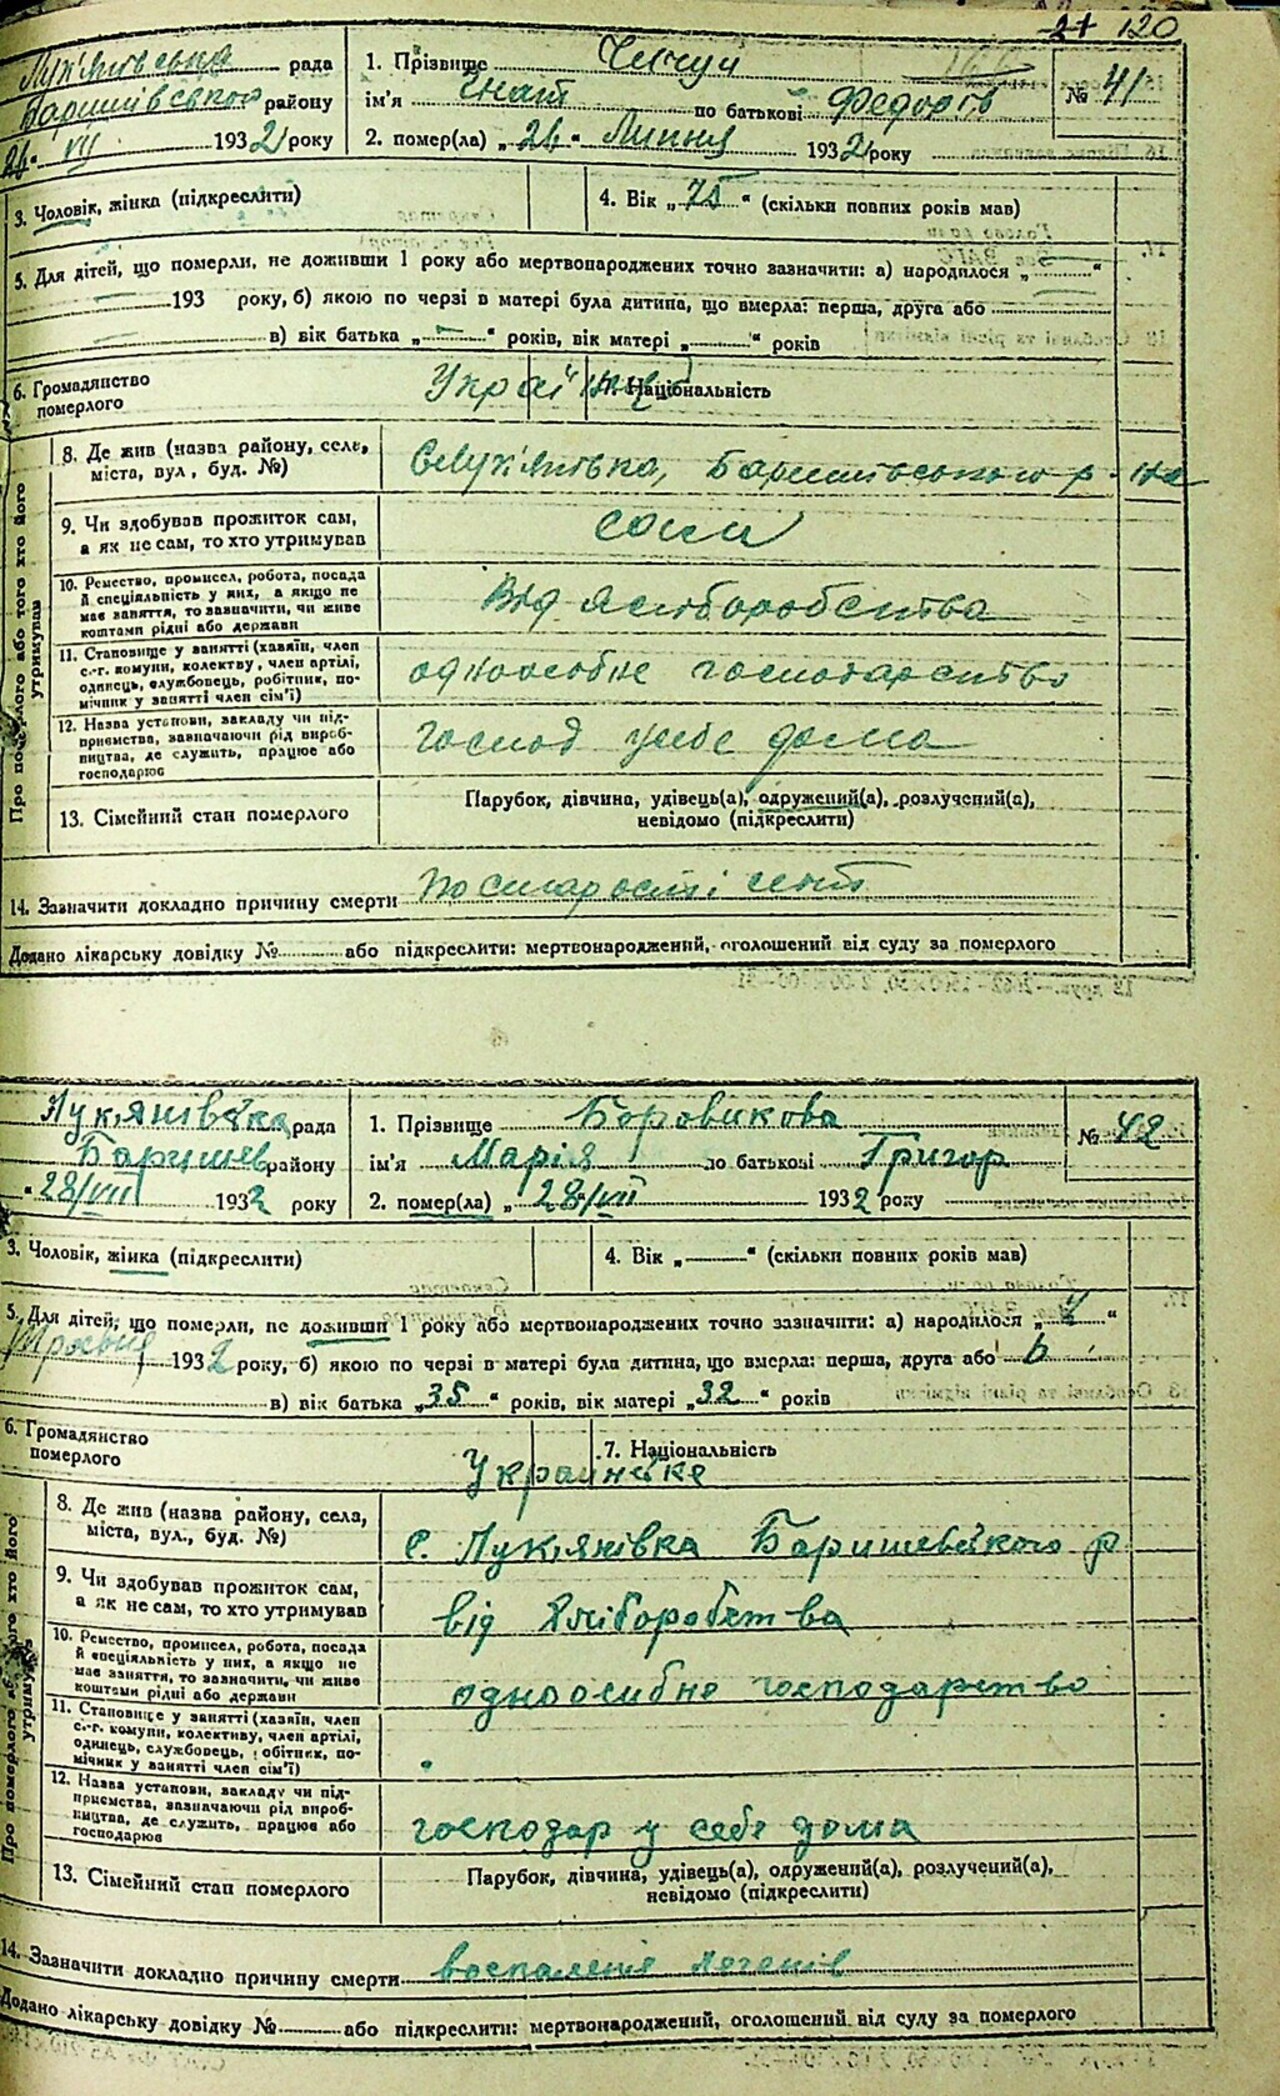 120
Лук'янівська рада
Баришівського району
26 " VII 1932 року
1. Прізвище
ім'я Гнат по батькові Федорів
2. помер(ла) „ 26 " Липня 1932 року
№ 41
3. Чоловік, жінка (підкреслити)
4. Вік „ 75 " (скільки повних років мав)
5. Для дітей, що померли, не доживши 1 року або мертвонароджених точно зазначити: а) народилося „ "
193 року, б) якою по черзі в матері була дитина, що вмерла: перша, друга або
в) вік батька „ " років, вік матері „ " років
6. Громадянство
померлого
Українець
7. Національність
Про померлого або того хто його утримував
8. Де жив (назва району, села,
міста, вул, буд. №)
с Лук'янівка, Баришівського р-на
9. Чи здобував прожиток сам,
а як не сам, то хто утримував
сам
10. Ремество, промисел, робота, посада
й спеціяльність у них, а якщо не
має заняття, то зазначити, чи живе
коштами рідні або держави
Від хліборобства
11. Становище у занятті (хазяїн, член
с.-г. комуни, колективу, член артілі,
одинець, службовець, робітник, по-
мічник у занятті член сім'ї)
одноосібне господарство
12. Назва установи, закладу чи під-
приємства, зазначаючи рід вироб-
ництва, де служить, працює або
господарює
господ у себе дома
13. Сімейний стан померлого
Парубок, дівчина, удівець(а), одружений(а), розлучений(а),
невідомо (підкреслити)
14. Зазначити докладно причину смерти по старості
Додано лікарську довідку № або підкреслити: мертвонароджений, оголошений від суду за померлого
Лукянівська рада
Баришев району
" 28/VII 1932 року
1. Прізвище Боровикова
ім'я Марія по батькові Григор
2. помер(ла) „ 28/VII 1932 року
№ 42
3. Чоловік, жінка (підкреслити)
4. Вік „ — " (скільки повних років мав)
5. Для дітей, що померли, не доживши 1 року або мертвонароджених точно зазначити: а) народилося „ 4 "
Травня 1932 року, б) якою по черзі в матері була дитина, що вмерла: перша, друга або 6
в) вік батька „ 35 " років, вік матері „ 32 " років
6. Громадянство
померлого
Украинське
7. Національність
Про померлого або того хто його утримував
8. Де жив (назва району, села,
міста, вул., буд. №)
с. Лукянівка Баришевського р
9. Чи здобував прожиток сам,
а як не сам, то хто утримував
від хліборобства
10. Ремество, промисел, робота, посада
й спеціяльність у них, а якщо не
має заняття, то зазначити, чи живе
коштами рідні або держави
одноосибне господарство
11. Становище у занятті (хазяїн, член
с.-г. комуни, колективу, член артілі,
одинець, службовець, робітник, по-
мічник у занятті член сім'ї)
12. Назва установи, закладу чи під-
приємства, зазначаючи рід вироб-
ництва, де служить, працює або
господарює
господар у себе дома
13. Сімейний стан померлого
Парубок, дівчина, удівець(а), одружений(а), розлучений(а),
невідомо (підкреслити)
14. Зазначити докладно причину смерти воспаленія легенів
Додано лікарську довідку № або підкреслити: мертвонароджений, оголошений від суду за померлого